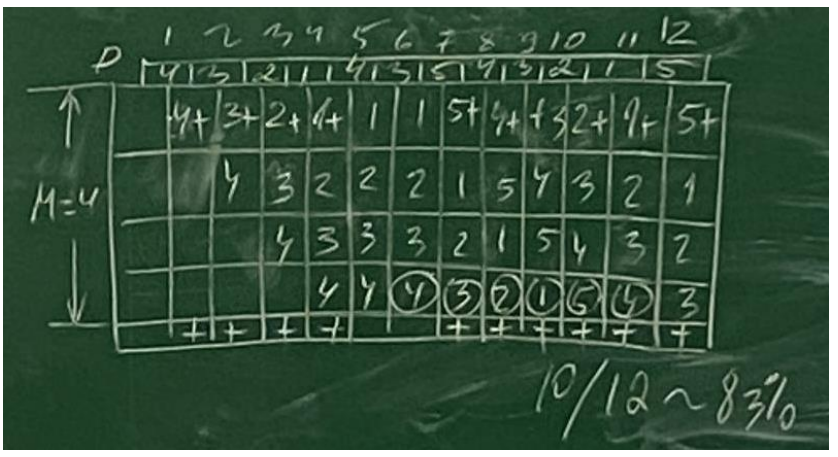 1 2 3 4 5 6 7 8 9 10 11 12
P 4 3 2 1 4 3 5 4 3 2 1 5
4+ 3+ 2+ 1+ 1 1 5+ 4+ +3 2+ 1+ 5+
M=4 4 3 2 2 2 1 5 4 3 2 1
4 3 3 3 2 1 5 4 3 2
4 4 4 3 2 1 5 4 3
+ + + + + + + + + +
10/12 ~ 83%